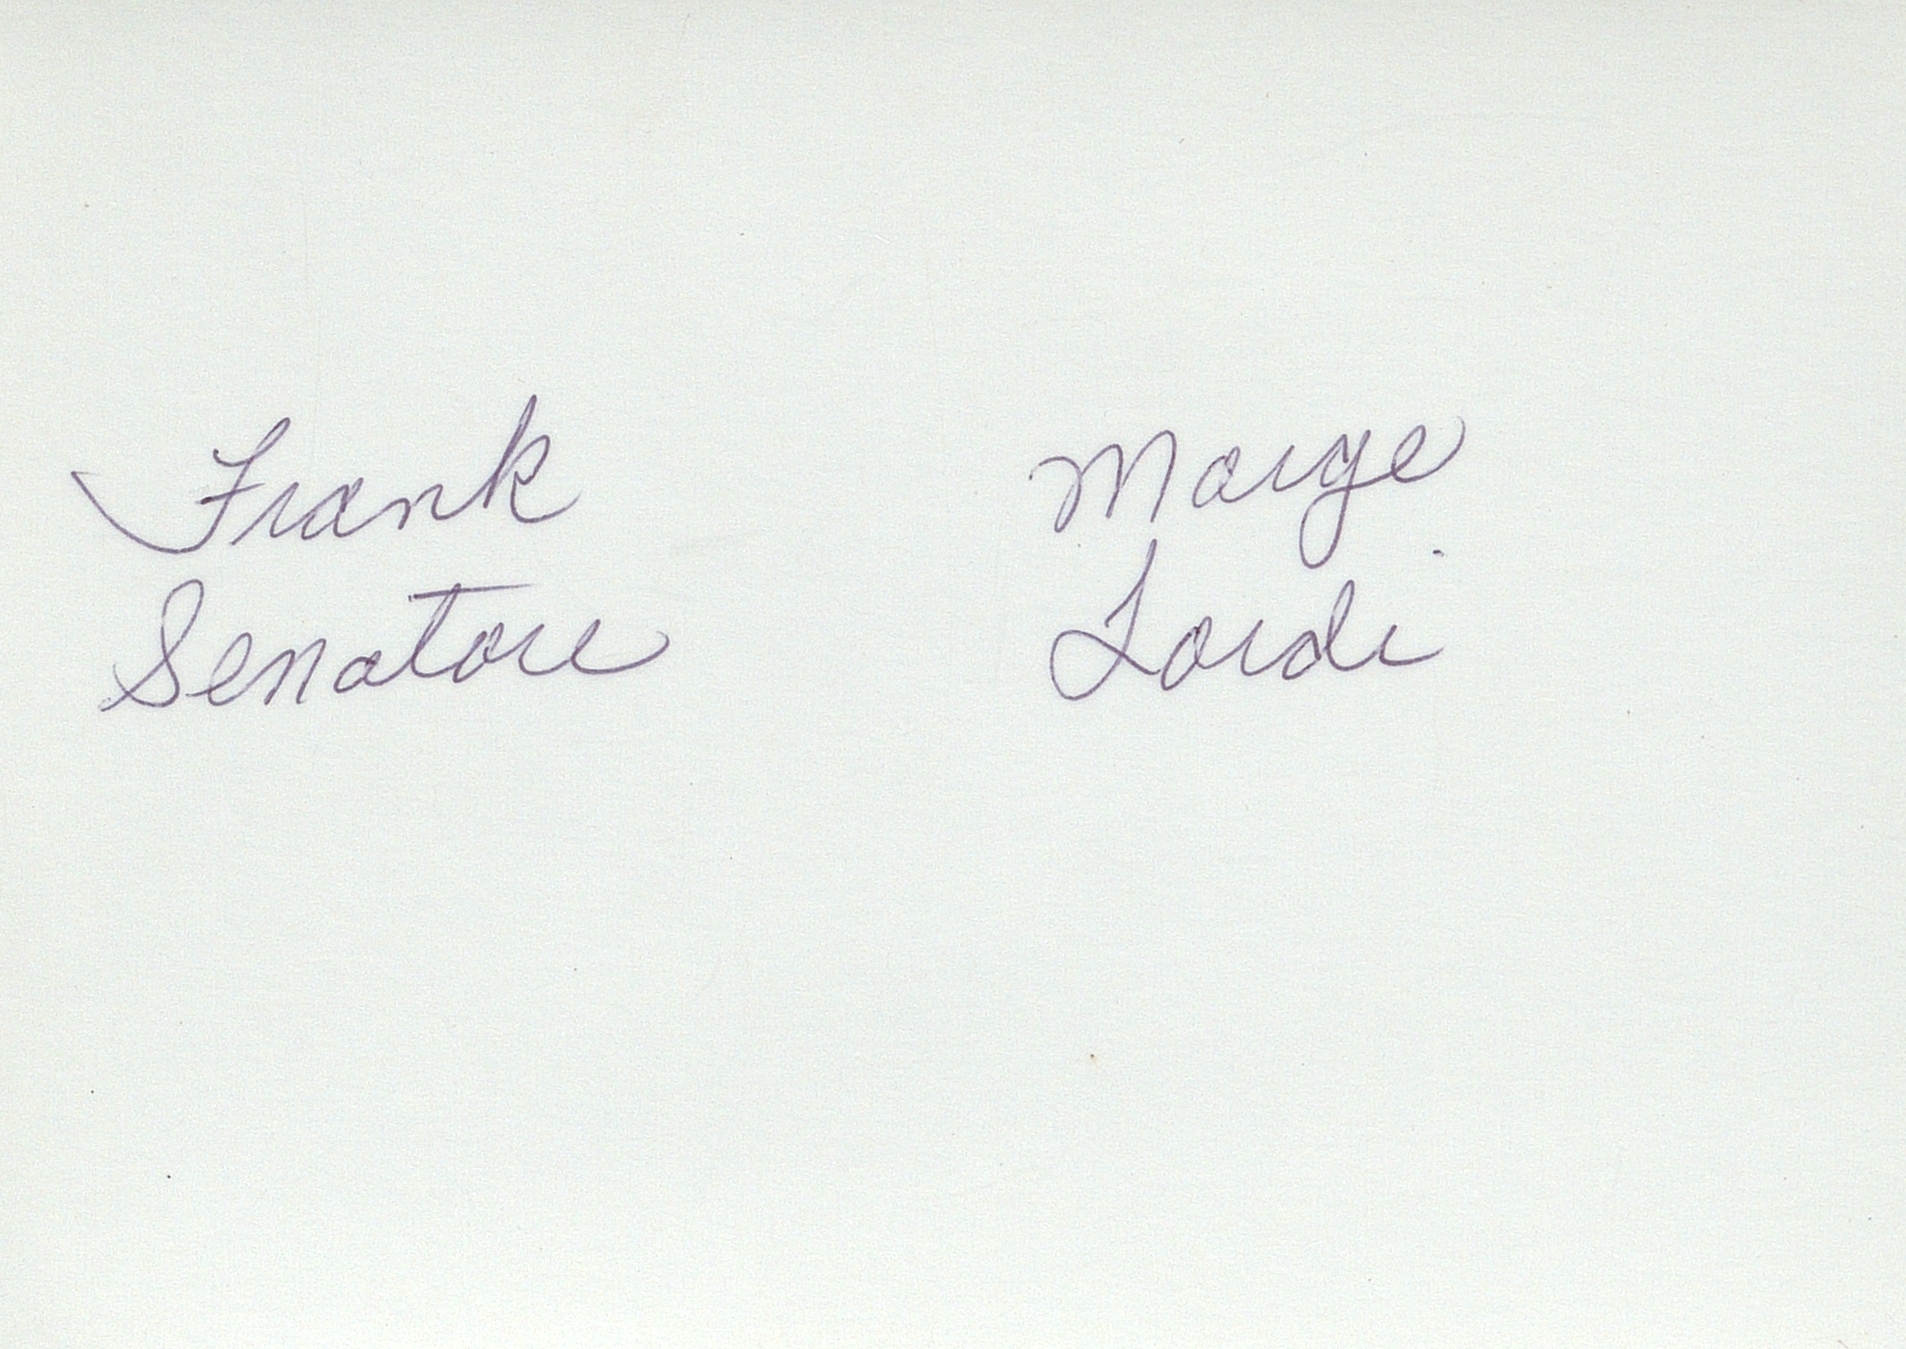 Frank
Senatore
Marge
Lordi